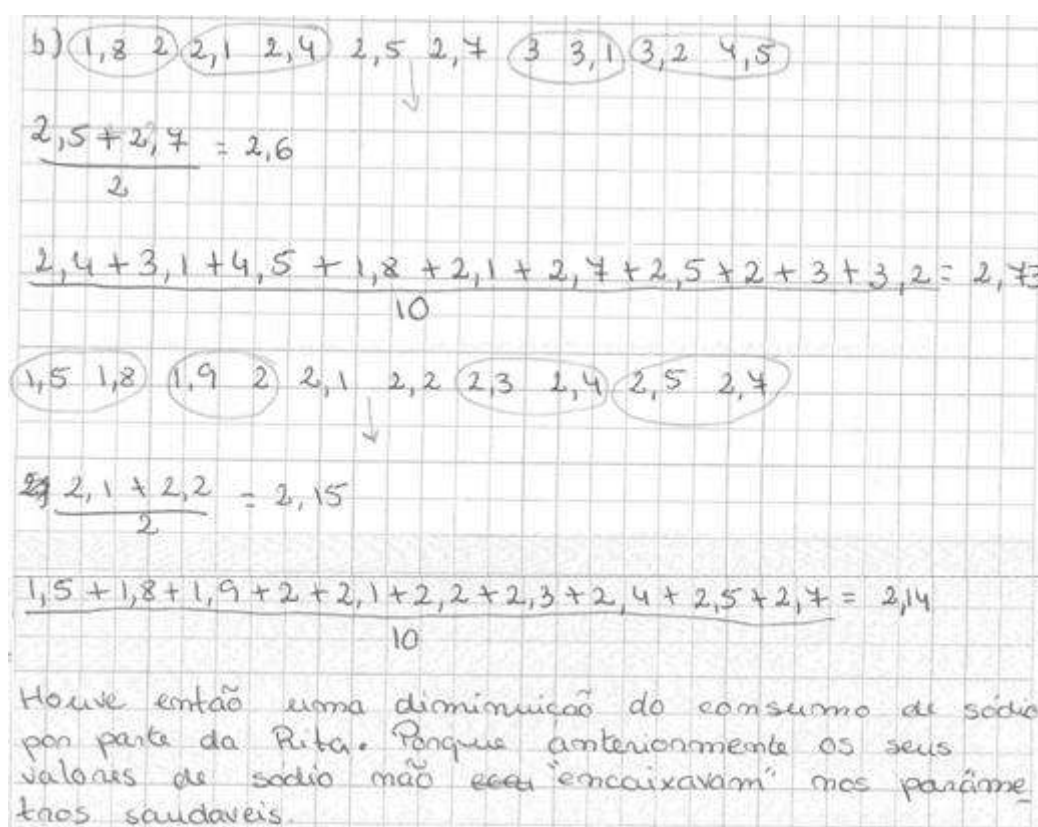 b) 1,8 2 2,1 2,4 2,5 2,7 3 3,1 3,2 4,5
2,5 + 2,7 = 2,6
2
2,4 + 3,1 + 4,5 + 1,8 + 2,1 + 2,7 + 2,5 + 2 + 3 + 3,2 = 2,73
10
1,5 1,8 1,9 2 2,1 2,2 2,3 2,4 2,5 2,7
2,1 + 2,2 = 2,15
2
1,5 + 1,8 + 1,9 + 2 + 2,1 + 2,2 + 2,3 + 2,4 + 2,5 + 2,7 = 2,14
10
Houve então uma diminuição do consumo de sódio
por parte da Rita. Porque anteriormente os seus
valores de sódio não "encaixavam" nos parâme_
tros saudaveis.